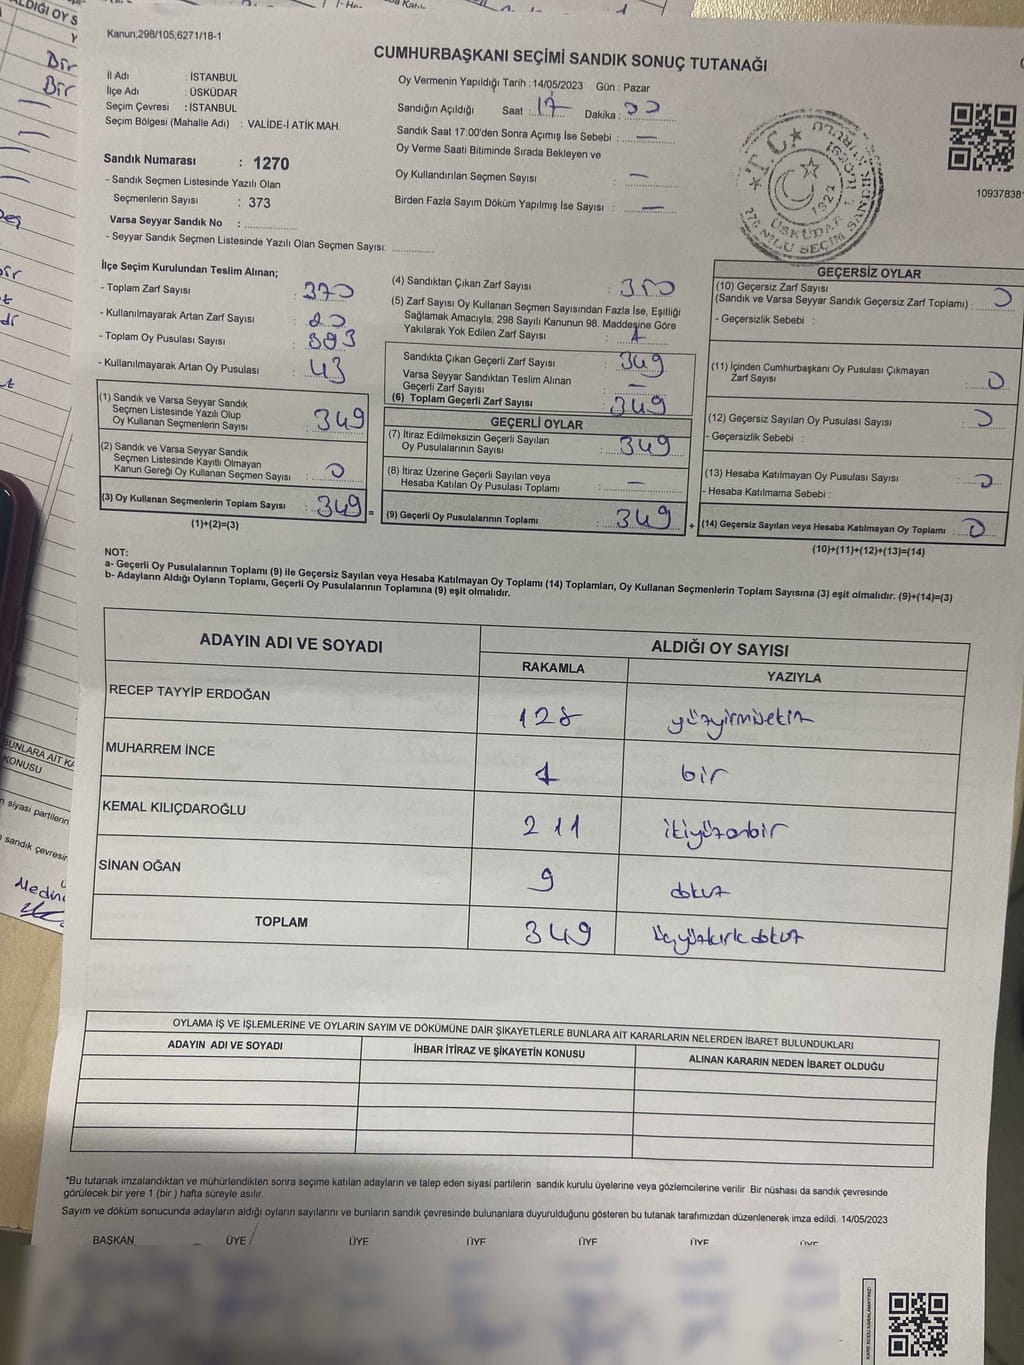 Kanun;298/105,6271/18-1
CUMHURBAŞKANI SEÇİMİ SANDIK SONUÇ TUTANAĞI
İl Adı : İSTANBUL
İlçe Adı : ÜSKÜDAR
Seçim Çevresi : İSTANBUL
Seçim Bölgesi (Mahalle Adı) : VALİDE-İ ATİK MAH.
Sandık Numarası : 1270
- Sandık Seçmen Listesinde Yazılı Olan
Seçmenlerin Sayısı : 373
Varsa Seyyar Sandık No :
- Seyyar Sandık Seçmen Listesinde Yazılı Olan Seçmen Sayısı:
Oy Vermenin Yapıldığı Tarih : 14/05/2023 Gün : Pazar
Sandığın Açıldığı Saat : 17 Dakika : 00
Sandık Saat 17:00'den Sonra Açımış İse Sebebi : —
Oy Verme Saati Bitiminde Sırada Bekleyen ve
Oy Kullandırılan Seçmen Sayısı : —
Birden Fazla Sayım Döküm Yapılmış İse Sayısı : —
T.C.
1921
ÜSKÜDAR
1093738
İlçe Seçim Kurulundan Teslim Alınan;
- Toplam Zarf Sayısı : 370
- Kullanılmayarak Artan Zarf Sayısı : 20
- Toplam Oy Pusulası Sayısı : 393
- Kullanılmayarak Artan Oy Pusulası : 43
(1) Sandık ve Varsa Seyyar Sandık
Seçmen Listesinde Yazılı Olup
Oy Kullanan Seçmenlerin Sayısı : 349
(2) Sandık ve Varsa Seyyar Sandık
Seçmen Listesinde Kayıtlı Olmayan
Kanun Gereği Oy Kullanan Seçmen Sayısı : 0
(3) Oy Kullanan Seçmenlerin Toplam Sayısı : 349 =
(1)+(2)=(3)
(4) Sandıktan Çıkan Zarf Sayısı : 350
(5) Zarf Sayısı Oy Kullanan Seçmen Sayısından Fazla İse, Eşitliği
Sağlamak Amacıyla; 298 Sayılı Kanunun 98. Maddesine Göre
Yakılarak Yok Edilen Zarf Sayısı : 1
Sandıkta Çıkan Geçerli Zarf Sayısı : 349
Varsa Seyyar Sandıktan Teslim Alınan
Geçerli Zarf Sayısı : —
(6) Toplam Geçerli Zarf Sayısı : 349
GEÇERLİ OYLAR
(7) İtiraz Edilmeksizin Geçerli Sayılan
Oy Pusulalarının Sayısı : 349
(8) İtiraz Üzerine Geçerli Sayılan veya
Hesaba Katılan Oy Pusulası Toplamı : —
(9) Geçerli Oy Pusulalarının Toplamı : 349 +
GEÇERSİZ OYLAR
(10) Geçersiz Zarf Sayısı
(Sandık ve Varsa Seyyar Sandık Geçersiz Zarf Toplamı) : 0
- Geçersizlik Sebebi :
(11) İçinden Cumhurbaşkanı Oy Pusulası Çıkmayan
Zarf Sayısı : 0
(12) Geçersiz Sayılan Oy Pusulası Sayısı : 0
- Geçersizlik Sebebi :
(13) Hesaba Katılmayan Oy Pusulası Sayısı : 0
- Hesaba Katılmama Sebebi :
(14) Geçersiz Sayılan veya Hesaba Katılmayan Oy Toplamı : 0
(10)+(11)+(12)+(13)=(14)
NOT:
a- Geçerli Oy Pusulalarının Toplamı (9) ile Geçersiz Sayılan veya Hesaba Katılmayan Oy Toplamı (14) Toplamları, Oy Kullanan Seçmenlerin Toplam Sayısına (3) eşit olmalıdır. (9)+(14)=(3)
b- Adayların Aldığı Oyların Toplamı, Geçerli Oy Pusulalarının Toplamına (9) eşit olmalıdır.
ADAYIN ADI VE SOYADI
ALDIĞI OY SAYISI
RAKAMLA YAZIYLA
RECEP TAYYİP ERDOĞAN 128 yüzyirmisekiz
MUHARREM İNCE 1 bir
KEMAL KILIÇDAROĞLU 211 ikiyüzonbir
SİNAN OĞAN 9 dokuz
TOPLAM 349 üçyüzkırkdokuz
OYLAMA İŞ VE İŞLEMLERİNE VE OYLARIN SAYIM VE DÖKÜMÜNE DAİR ŞİKAYETLERLE BUNLARA AİT KARARLARIN NELERDEN İBARET BULUNDUKLARI
ADAYIN ADI VE SOYADI
İHBAR İTİRAZ VE ŞİKAYETİN KONUSU
ALINAN KARARIN NEDEN İBARET OLDUĞU
*Bu tutanak imzalandıktan ve mühürlendikten sonra seçime katılan adayların ve talep eden siyasi partilerin sandık kurulu üyelerine veya gözlemcilerine verilir .Bir nüshası da sandık çevresinde
görülecek bir yere 1 (bir ) hafta süreyle asılır.
Sayım ve döküm sonucunda adayların aldığı oyların sayılarını ve bunların sandık çevresinde bulunanlara duyurulduğunu gösteren bu tutanak tarafımızdan düzenlenerek imza edildi. 14/05/2023
BAŞKAN ÜYE ÜYE ÜYE ÜYE ÜYE ÜYE